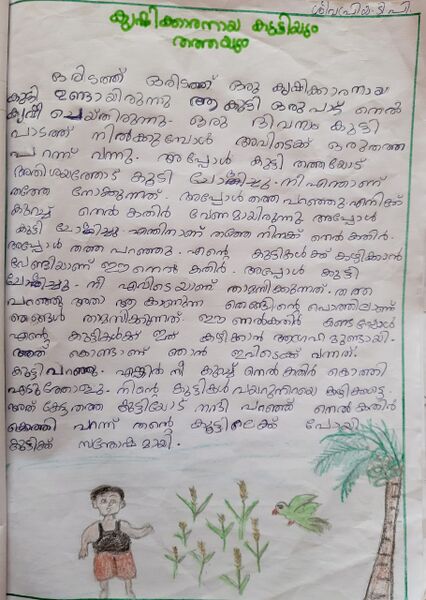 ശിവപ്രിയ. ടി. പി
കൃഷിക്കാരനായ കുട്ടിയും
തത്തയും
ഒരിടത്ത് ഒരിടത്ത് ഒരു കൃഷിക്കാരനായ
കുട്ടി ഉണ്ടായിരുന്നു ആ കുട്ടി ഒരുപാട് നെൽ
കൃഷി ചെയ്തിരുന്നു. ഒരു ദിവസം കുട്ടി
പാടത്ത് നിൽക്കുമ്പോൾ അവിടെക്ക് ഒരുതത്ത
പറന്ന് വന്നു. അപ്പോൾ കുട്ടി തത്തയോട്
അതിശയത്തോട് കുടി ചോദിച്ചു. നീ എന്താണ്
തത്തേ നോക്കുന്നത്. അപ്പോൾ തത്ത പറഞ്ഞു എനിക്ക്
കുറച്ച് നെൽ കതിർ വേണമായിരുന്നു അപ്പോൾ
കുട്ടി ചോദിച്ചു എന്തിനാണ് തത്തേ നിനക്ക് നെൽ കതിർ.
അപ്പോൾ തത്ത പറഞ്ഞു. എന്റെ കുട്ടികൾക്ക് കഴിക്കാൻ
വേണ്ടിയാണ് ഈ നെൽ കതിർ. അപ്പോൾ കുട്ടി
ചോദിച്ചു. നീ എവിടെയാണ് താമസിക്കുന്നത്. തത്ത
പറഞ്ഞു അതാ ആ കാണുന്ന തെങ്ങിന്റെ പൊത്തിലാണ്
ഞങ്ങൾ താമസിക്കുന്നത്. ഈ നൽകതിർ കണ്ടപ്പോൾ
എന്റെ കുട്ടികൾക്ക് ഇത് കഴിക്കാൻ ആഗ്രഹമുണ്ടായി.
അത് കൊണ്ടാണ് ഞാൻ ഇവിടെക്ക് വന്നത്.
കുട്ടി പറഞ്ഞു. എങ്കിൽ നീ കുറച്ച് നെൽകതിർ കൊത്തി
എടുത്തോളു. നിന്റെ കുട്ടികൾ വയറുനിറയെ കഴിക്കട്ടെ.
അത് കേട്ട തത്ത കുട്ടിയോട് നന്ദി പറഞ്ഞ് നെൽകതിർ
കൊത്തി പറന്ന് തന്റെ കൂട്ടിലെക്ക് പോയി
കുട്ടിക്ക് സന്തോഷമായി.